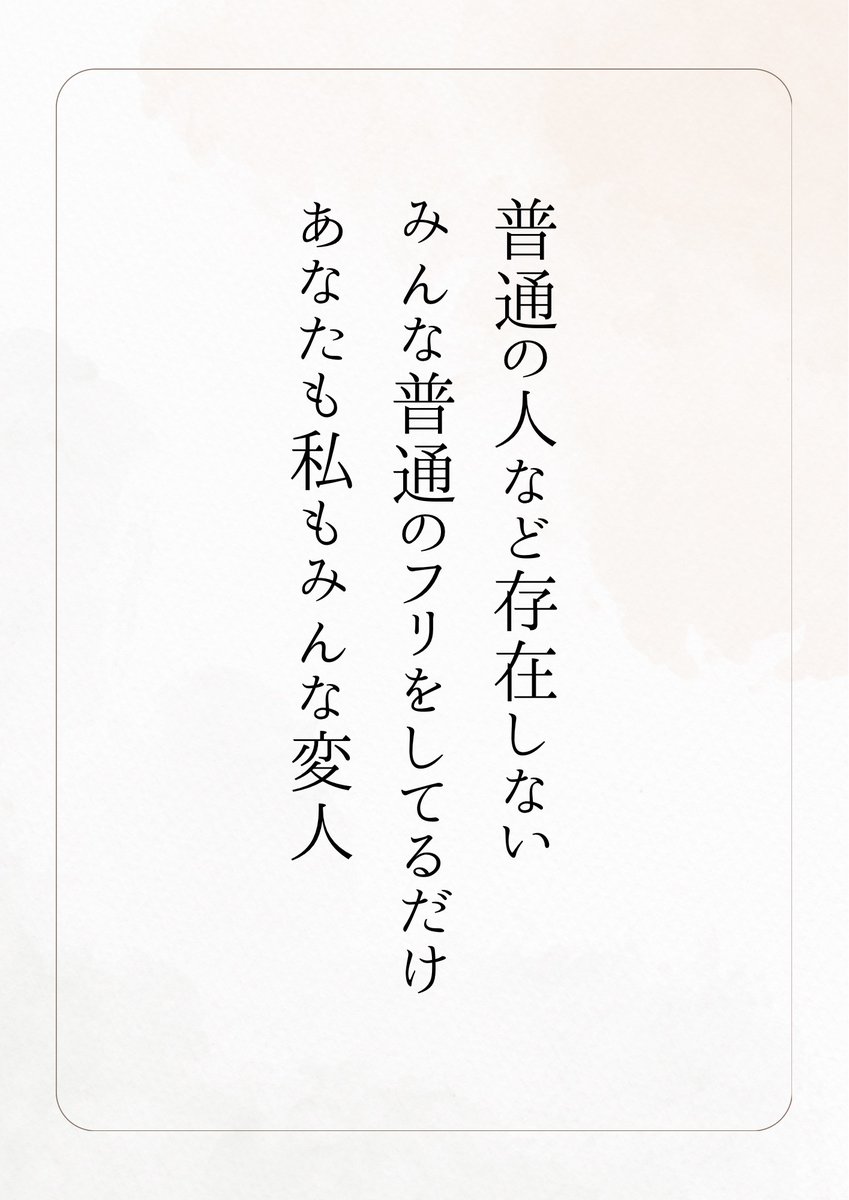 普通の人など存在しない
みんな普通のフリをしてるだけ
あなたも私もみんな変人